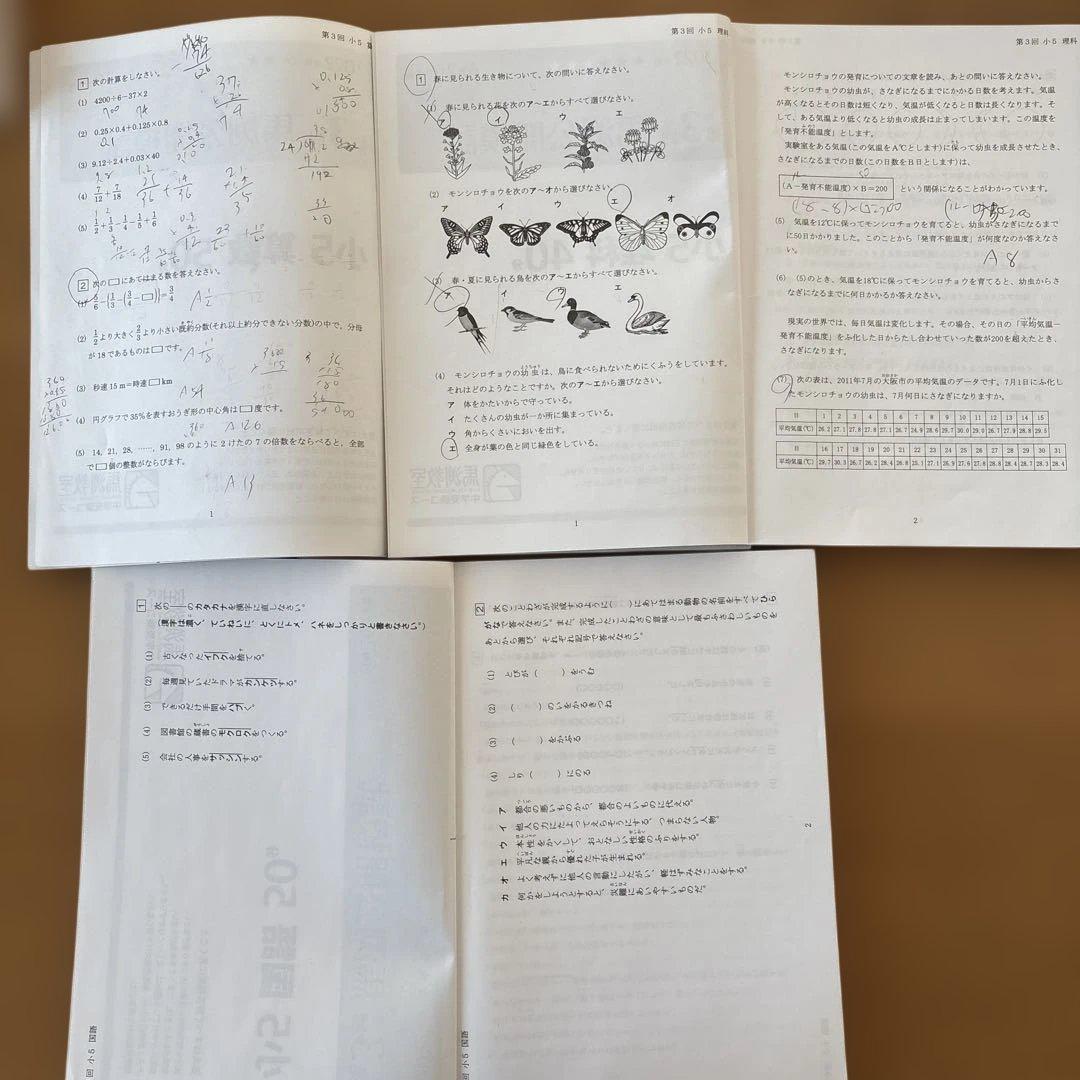 第3回 小5 算
1 次の計算をしなさい。
(1) 4200÷6−37×2
(2) 0.25×0.4+0.125×0.8
(3) 9.12÷2.4+0.03×40
(4) 7/12+7/18
(5) 1/2+1/3−1/4−1/5+1/6
2 次の□にあてはまる数を答えなさい。
(1) 5/6−{1/3−(3/4−□)}=3/4
(2) 1/2より大きく2/3より小さい既約分数(それ以上約分できない分数)の中で、分母
が18であるものは□です。
(3) 秒速15m=時速□km
A 54
(4) 円グラフで35%を表すおうぎ形の中心角は□度です。
A 126
(5) 14, 21, 28, ……, 91, 98のように2けたの7の倍数をならべると、全部
で□個の整数がならびます。
A 13
1
第3回 小5 理科
1 春に見られる生き物について、次の問いに答えなさい。
(1) 春に見られる花を次のア〜エからすべて選びなさい。
ア イ ウ エ
(2) モンシロチョウを次のア〜オから選びなさい。
ア イ ウ エ オ
(3) 春・夏に見られる鳥を次のア〜エからすべて選びなさい。
ア イ ウ エ
(4) モンシロチョウの幼虫は、鳥に食べられないためにくふうをしています。
それはどのようなことですか。次のア〜エから選びなさい。
ア 体をかたいからで守っている。
イ たくさんの幼虫が一か所に集まっている。
ウ 角からくさいにおいを出す。
エ 全身が葉の色と同じ緑色をしている。
1
第3回 小5 理科
モンシロチョウの発育についての文章を読み、あとの問いに答えなさい。
モンシロチョウの幼虫が、さなぎになるまでにかかる日数を考えます。気温
が高くなるとその日数は短くなり、気温が低くなると日数は長くなります。そ
して、ある気温より低くなると幼虫の成長は止まってしまいます。この温度を
「発育不能温度」とします。
実験室をある気温(この気温をA℃とします)に保って幼虫を成長させたとき、
さなぎになるまでの日数(この日数をB日とします)は、
(A−発育不能温度)×B=200 という関係になることがわかっています。
(5) 気温を12℃に保ってモンシロチョウを育てると、幼虫がさなぎになるまで
に50日かかりました。このことから「発育不能温度」が何度なのか答えなさ
い。
A 8
(6) (5)のとき、気温を18℃に保ってモンシロチョウを育てると、幼虫からさ
なぎになるまでに何日かかるか答えなさい。
現実の世界では、毎日気温は変化します。その場合、その日の「平均気温−
発育不能温度」をふ化した日からたし合わせていった数が200を超えたとき、
さなぎになります。
(7) 次の表は、2011年7月の大阪市の平均気温のデータです。7月1日にふ化し
たモンシロチョウの幼虫は、7月何日にさなぎになりますか。
日 1 2 3 4 5 6 7 8 9 10 11 12 13 14 15
平均気温(℃) 26.2 27.1 27.8 27.8 27.1 26.7 24.9 28.6 29.7 30.0 29.0 26.9 27.9 28.8 29.5
日 16 17 18 19 20 21 22 23 24 25 26 27 28 29 30 31
平均気温(℃) 29.7 30.3 26.7 26.2 28.4 26.8 25.1 27.1 26.9 27.6 28.8 26.6 28.8 30.7 28.3 28.4
2
1 次の――のカタカナを漢字に直しなさい。
(漢字は濃く、ていねいに、とくにトメ、ハネをしっかりと書きなさい。)
(1) 古くなったイフクを捨てる。
(2) 毎週見ていたドラマがカンケツする。
(3) できるだけ手間をハブく。
(4) 図書館の蔵書のモクロクをつくる。
(5) 会社の人事をサッシンする。
回 小5 国語
2 次のことわざが完成するように( )にあてはまる動物の名前をすべてひら
がなで答えなさい。また、完成したことわざの意味として最もふさわしいものを
あとから選び、それぞれ記号で答えなさい。
(1) とびが( )をうむ
(2) ( )のいをかるきつね
(3) ( )をかぶる
(4) しり( )にのる
ア 都合の悪いものから、都合のよいものに代える。
イ 他人の力にたよってえらそうにする、つまらない人物。
ウ 本性をかくして、おとなしい性格のふりをする。
エ 平凡な親から優れた子が生まれる。
オ よく考えずに他人の言動にしたがい、軽はずみなことをする。
カ 何かをしようとすると、災難にあいやすいものだ。
2
回 小5 国語